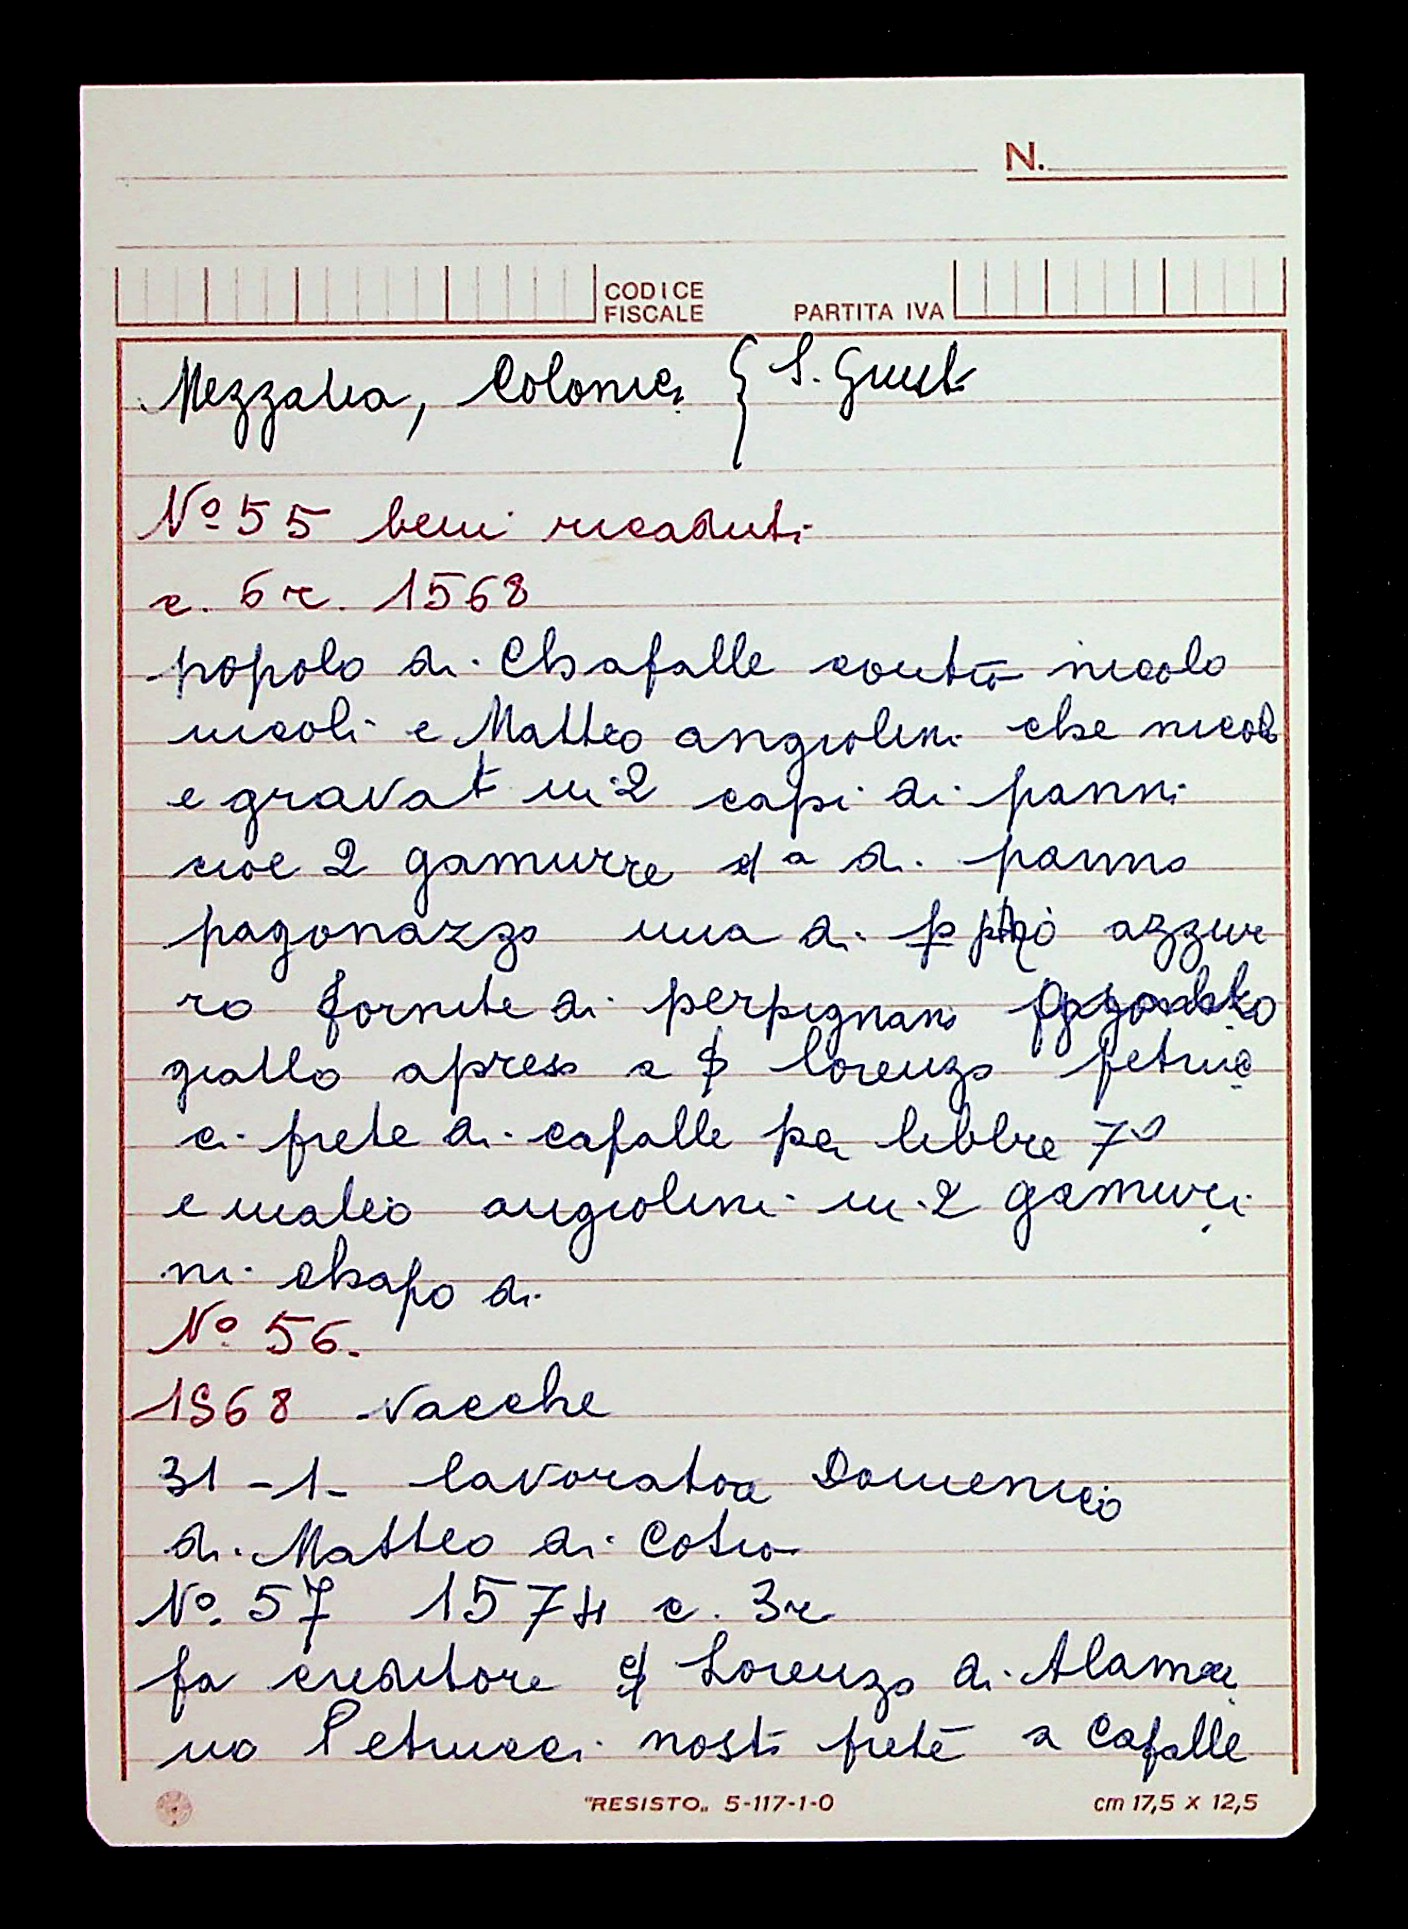 N.
CODICE
FISCALE PARTITA IVA
Mezzadria, Colonie, { S. Giusto
Nº 55 beni ricaduti
c. 6r. 1568
popolo di Chafalle contō nicolo
nicoli e Matteo angiolini che nicolo
e gravat in 2 capi di panni
cioè 2 gamurre da di panno
pagonazzo una di azzur
ro fornite di perpignano
giallo apreso a Lorenzo petruc
ci prete di cafalle per libbre 7
e mateo angiolini in 2 gamurri
ni chapo di
Nº 56.
1568 vacche
31 -1- lavoratore Domenico
di Matteo di Cotio
Nº. 57 1574 c. 3r
fa creditore Lorenzo di Alaman
no Petrucci nosti prete a Cafalle
"RESISTO„ 5-117-1-0 cm 17,5 x 12,5